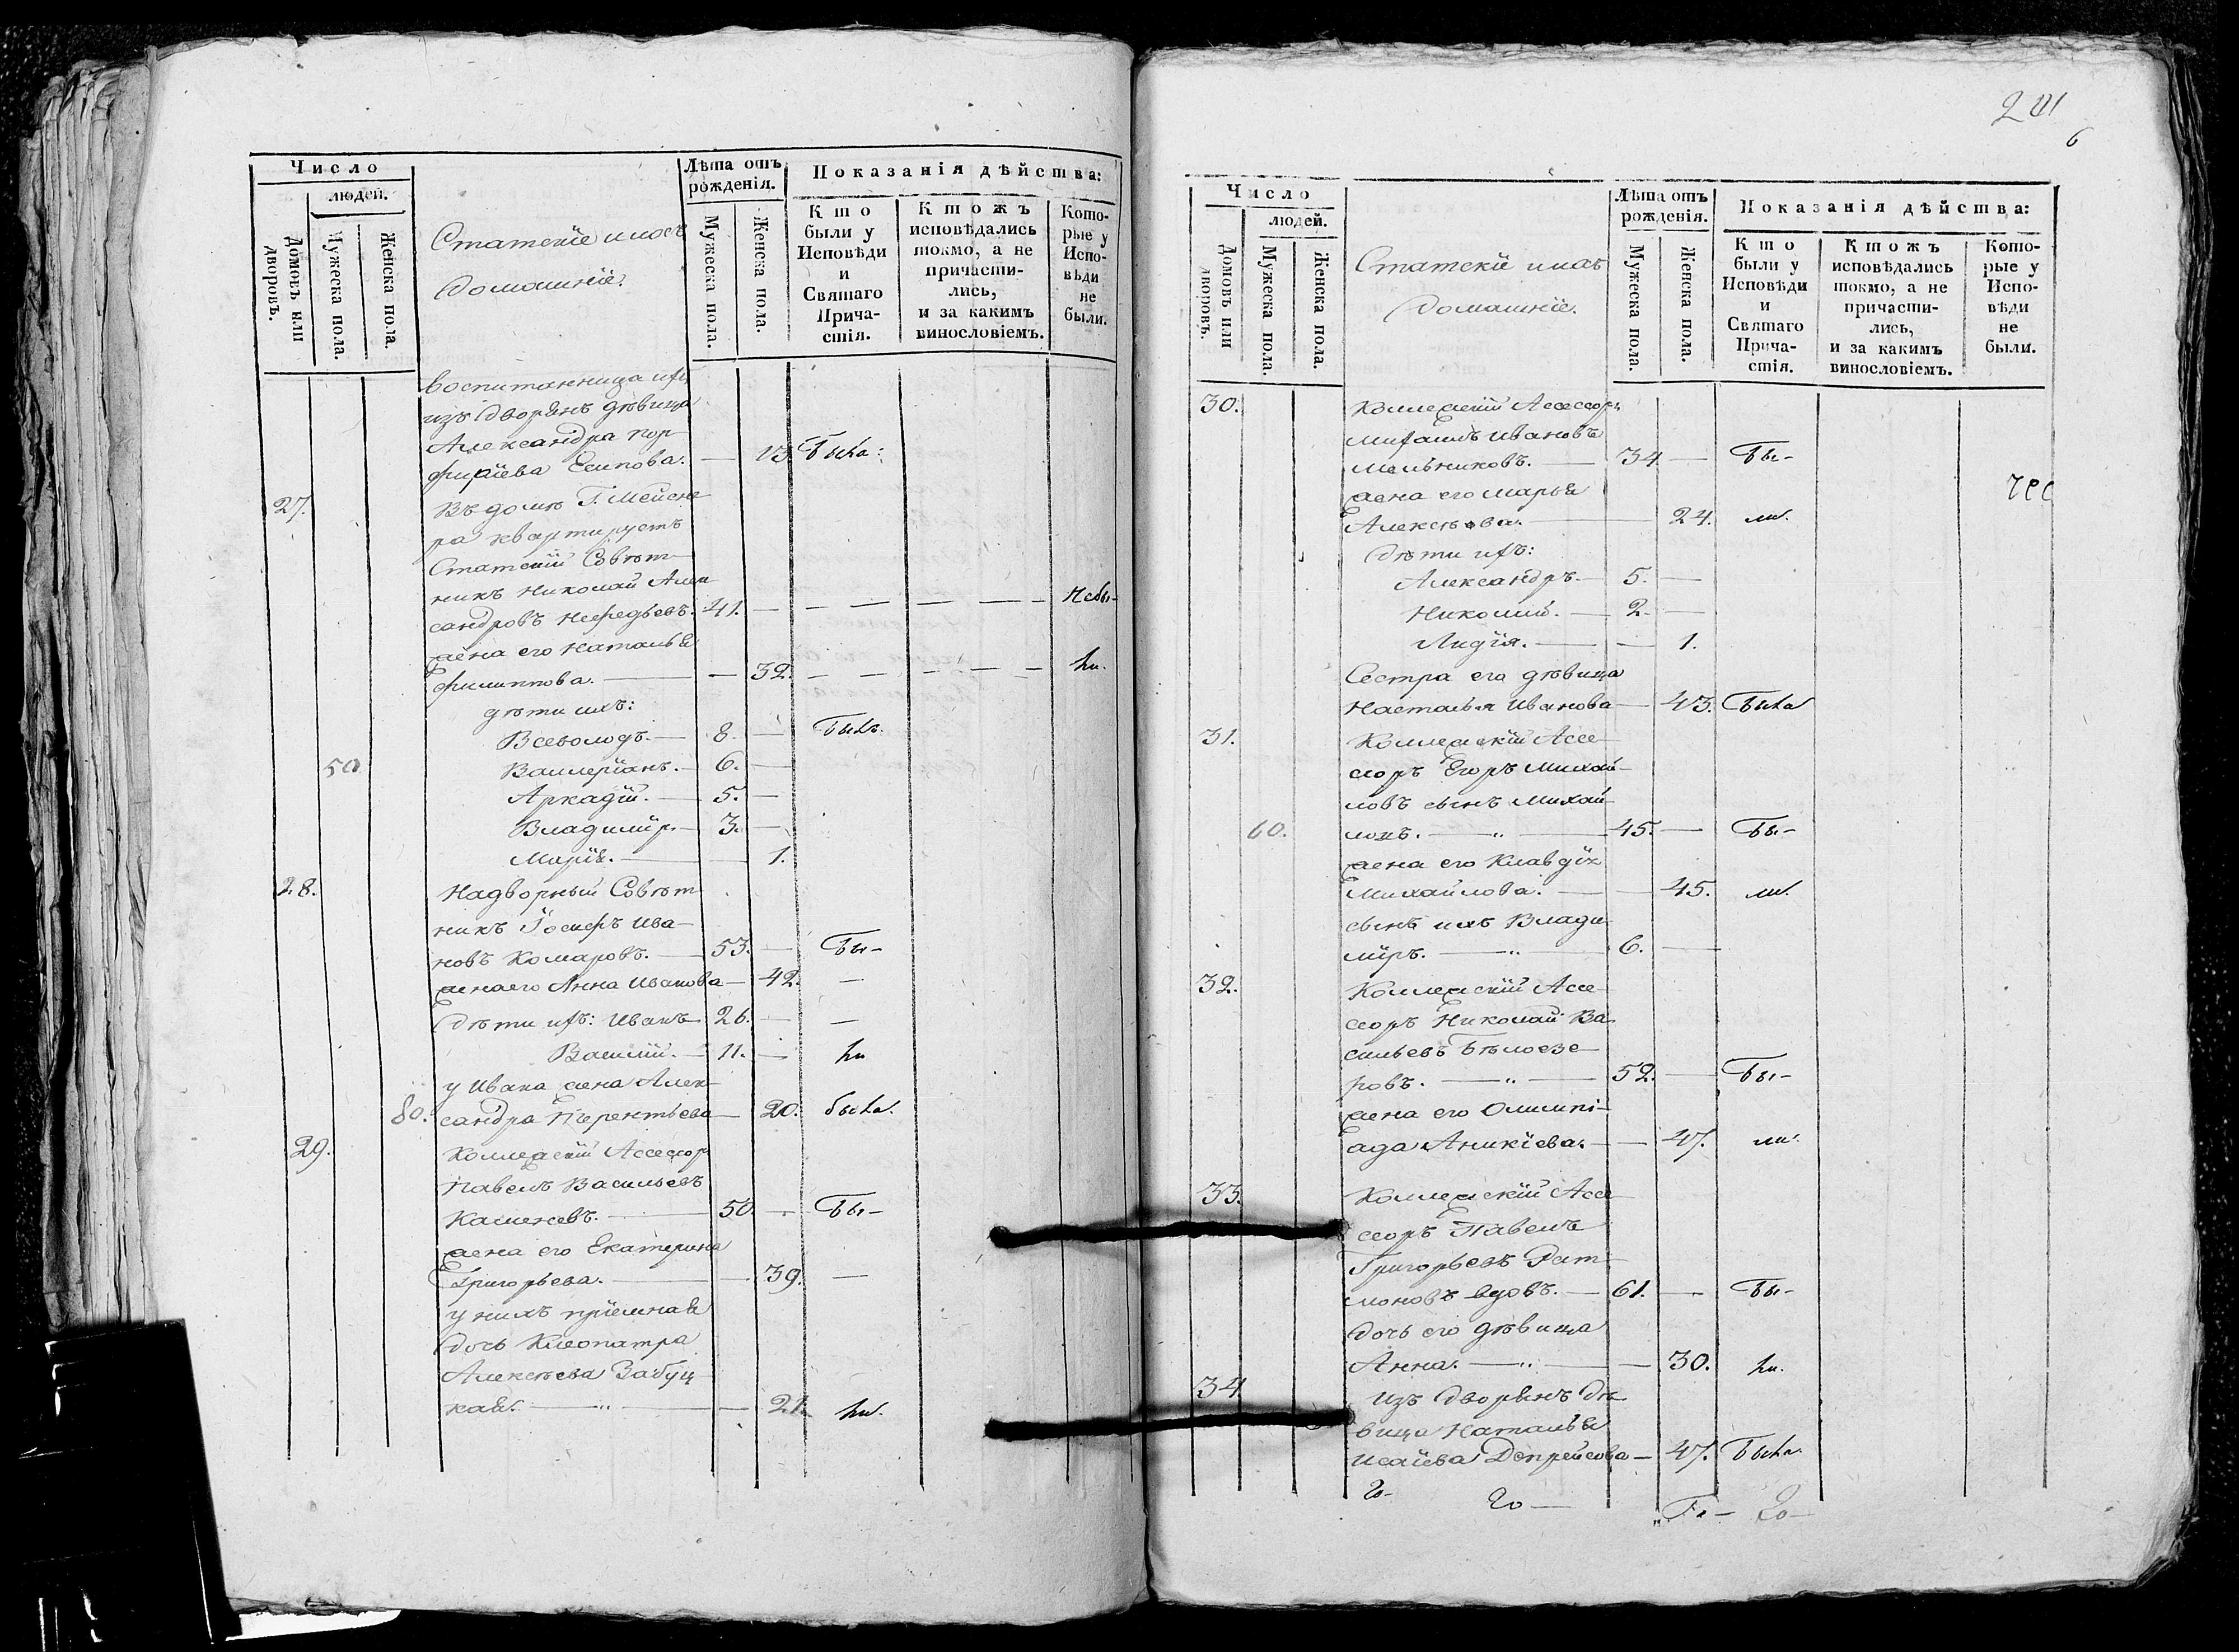 Число
людей.
Домовъ или дворовъ.
Мужеска пола.
Женска пола.
Статскіе и ихъ
домашніе.
Лѣта отъ рожденія.
Мужеска пола.
Женска пола.
Показанія дѣйства:
Кто были у Исповѣди и Святаго Прича-стія.
Ктожъ исповѣдались токмо, а не причасти-лись, и за какимъ винословіемъ.
Кото-рые у Испо-вѣди не были.
воспитанница ихъ
изъ дворянъ дѣвица
Александра Пор-
фирьева Есипова. — 13. Была:
27. Въ домѣ Г. Мейсне-
ра квартируетъ
Статскій Совѣт-
никъ Николай Алек
сандровъ Нефедьевъ. 41. — — — — — — Небы-
жена его Наталья
Филиппова. — — 32. — — — — —
дѣти ихъ:
Всеволодъ. — 8. — Былъ.
50 Валлеріанъ. — 6. —
Аркадій. — 5. —
Владиміръ. — 3. —
Марія. — — 1.
28. Надворный Совѣт
никъ Іосифъ Ива-
новъ Комаровъ. — 53. — Бы-
жена его Анна Иванова — 42. —
Дѣти ихъ: Иванъ 26. — —
Василій. — 11. —
у Ивана жена Алек-
80. сандра Терентьева — 20. была.
29. Коллежскій Ассессоръ
Павелъ Васильевъ
Каменевъ. — 50. — Бы-
жена его Екатерина
Григорьева. — — 39. —
у нихъ пріемная
дочь Клеопатра
Алексѣева Забуц
кая. — „ — — 21.
241
6
Число
людей.
Домовъ или дворовъ.
Мужеска пола.
Женска пола.
Статскіе и ихъ
домашніе.
Лѣта отъ рожденія.
Мужеска пола.
Женска пола.
Показанія дѣйства:
Кто были у Исповѣди и Святаго Прича-стія.
Ктожъ исповѣдались токмо, а не причасти-лись, и за какимъ винословіемъ.
Кото-рые у Испо-вѣди не были.
30. Коллежскій Ассессоръ
Михаилъ Ивановъ
Мельниковъ. — 34 — Бы-
жена его Марья
Алексѣева. — — 24. ли.
Дѣти ихъ:
Александръ. — 5. —
Николай. — 2. —
Лидія. — — 1.
Сестра его дѣвица
Настасья Иванова — 43. Была
31. Коллежскій Ассе-
соръ Егоръ Михай-
ловъ сынъ Михай-
60. ловъ. — „ — 45. — Бы-
жена его Клавдія
Михайлова. — — 45. ли.
сынъ ихъ Влади-
міръ. — „ — 6. —
32. Коллежскій Ассе-
соръ Николай Ва-
сильевъ Бѣлоезе-
ровъ. — „ — 52. — Бы-
жена его Олимпі-
ада Аникіева. — — 47. ли.
33. Коллежскій Ассе
соръ Павелъ
Григорьевъ Рат-
мановъ вдовъ. — 61. — Бы-
дочь его дѣвица
Анна. — „ — — 30.
34. Изъ дворянъ дѣ-
вица Наталья
Исаіева Депрейсова — 47. Была.